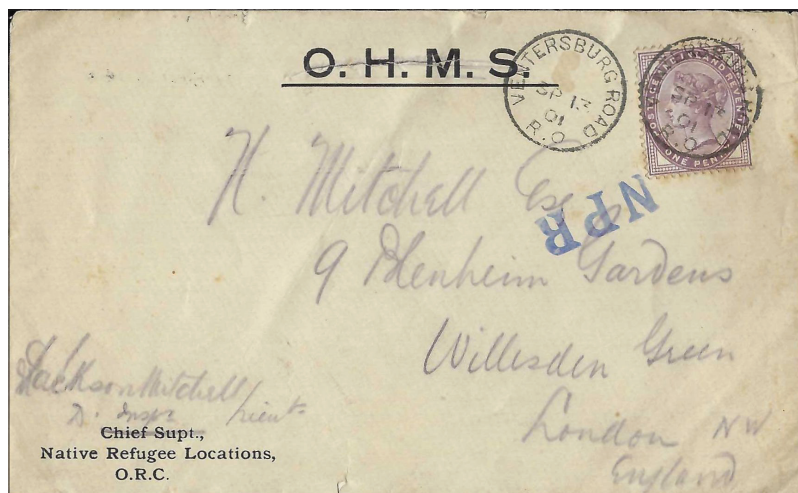 O. H. M. S.
VENTERSBURG ROAD
SP 13
01
R.O
POSTAGE AND INLAND REVENUE
ONE PENNY
H. Mitchell Esq
NPR
9 Blenheim Gardens
Willesden Green
London NW
England
Jackson Mitchell
D. Inspr Lieut
Chief Supt.,
Native Refugee Locations,
O.R.C.